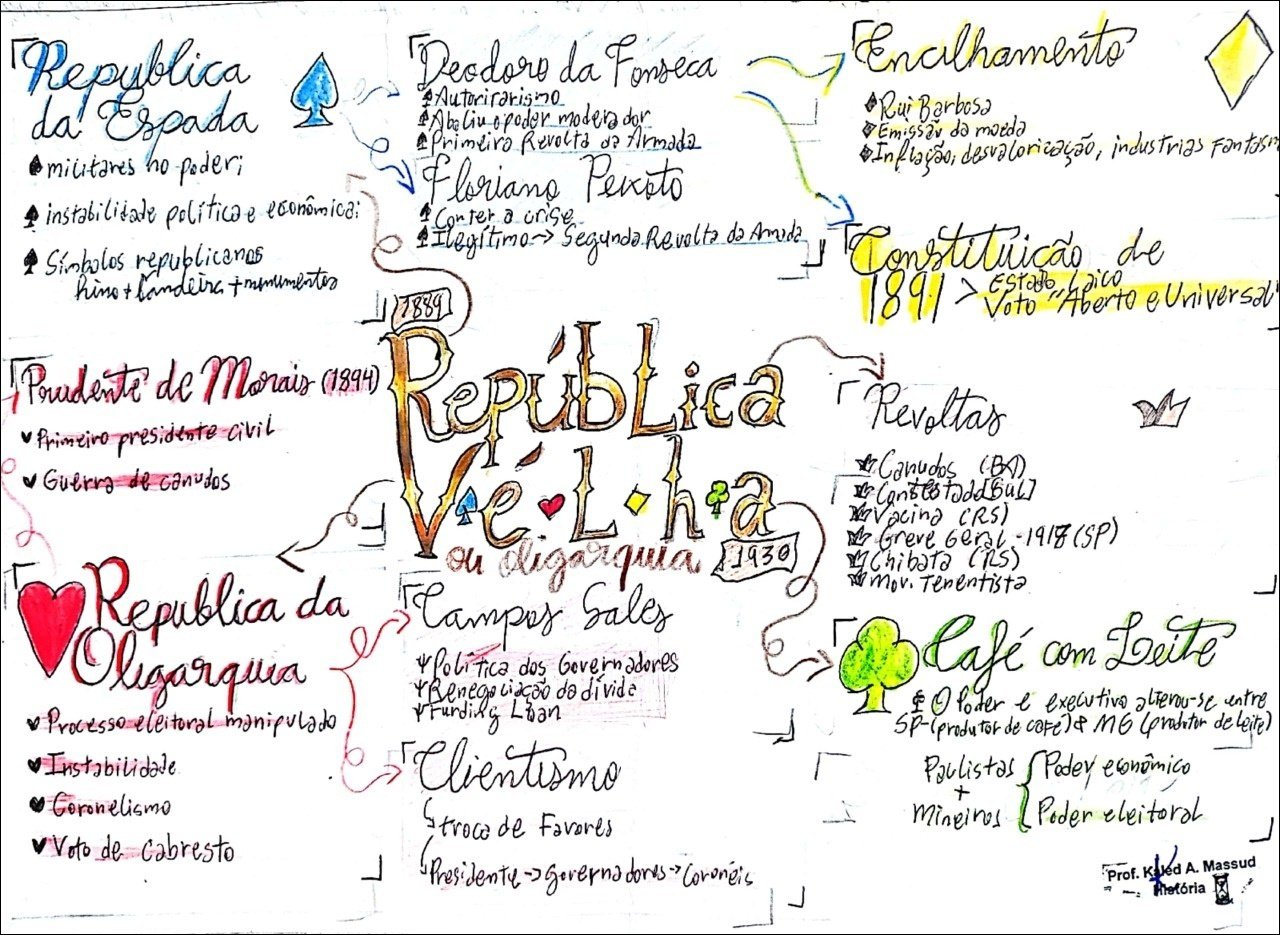 Republica
da Espada
militares no poder;
instabilidade política e econômica;
Símbolos republicanos
hino + bandeira + monumentos
Deodoro da Fonseca
Autoritarismo
Aboliu o poder moderador
Primeira Revolta da Armada
Floriano Peixoto
Conter a crise
Ilegítimo -> Segunda Revolta da Amada
Encilhamento
Rui Barbosa
Emissão da moeda
Inflação, desvalorização, industrias Fantasm
Constituição de
1891 > Estado Laico
Voto "Aberto e Universal
Prudente de Morais (1894)
Primeiro presidente civil
Guerra de canudos
1889
República
Vélha
ou oligarquia
1930
Revoltas
Canudos (BA)
Contestado [Sul]
Vacina (RS)
Greve Geral - 1918 (SP)
Chibata (RS)
Mov. Tenentista
Republica da
Oligarquia
Processo eleitoral manipulado
Instabilidade
Coronelismo
Voto de cabresto
Campos Sales
Política dos Governadores
Renegociação da dívida
Funding Loan
Clientismo
troca de Favores
Presidente -> Governadores -> Coronéis
Café com Leite
O Poder e executivo alternou-se entre
SP-(produtor de café) & MG (produtor de leite)
Paulistas
+
Mineiros
Poder econômico
Poder eleitoral
Prof. Kaled A. Massud
História